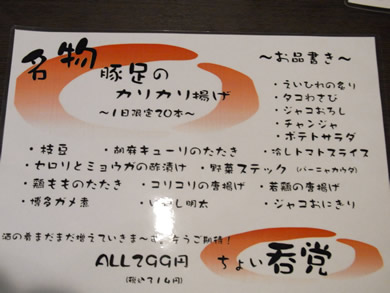 名物
豚足の
カリカリ揚げ
～1日限定20本～
～お品書き～
・えいひれの炙り
・タコわさび
・ジャコおろし
・チャンジャ
・ポテトサラダ
・枝豆 ・胡麻キューリのたたき ・冷しトマトスライス
・セロリとミョウガの酢漬け ・野菜スティック（バーニャカウダ）
・鶏もものたたき ・コリコリの唐揚げ ・若鶏の唐揚げ
・博多ガメ煮 ・いわし明太 ・ジャコおにぎり
酒の肴まだまだ増えていきま～す。乞うご期待！
ALL299円
(税込314円)
ちょい呑党